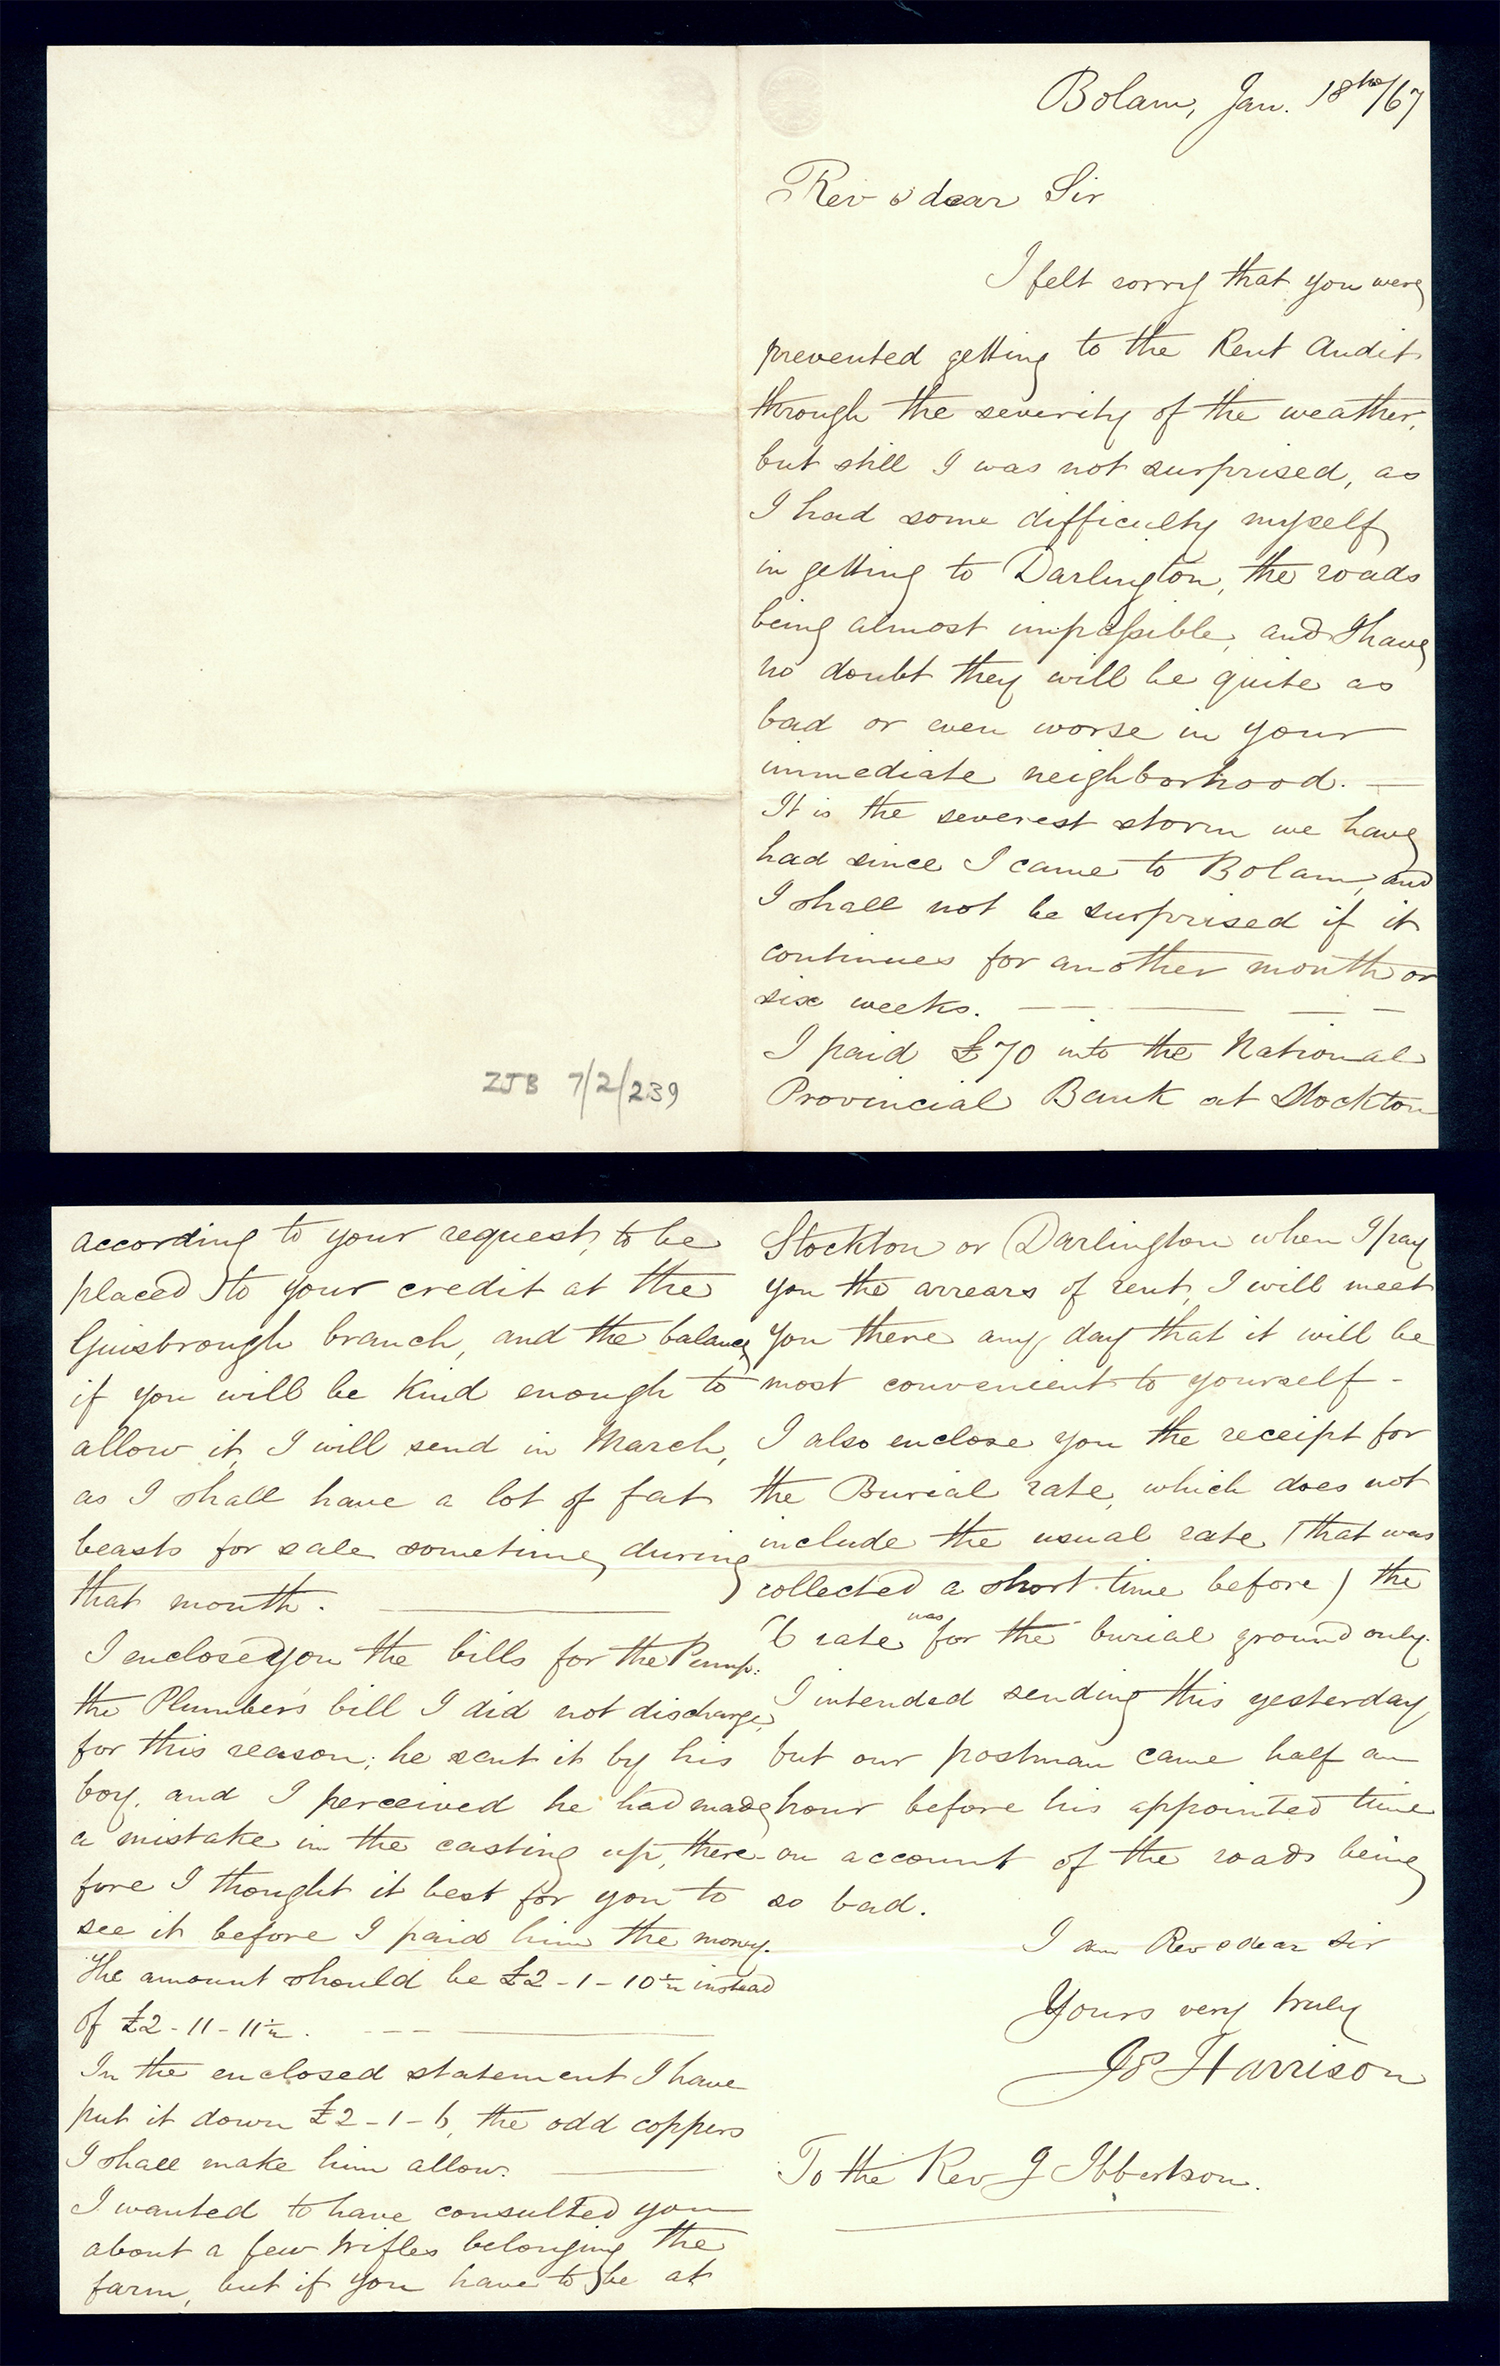 Bolam, Jan. 18th/67
Rev & dear Sir
I felt sorry that you were
prevented getting to the Rent Audit
through the severity of the weather,
but still I was not surprised, as
I had some difficulty myself
in getting to Darlington, the roads
being almost impassible, and I have
no doubt they will be quite as
bad or even worse in your
immediate neighborhood. —
It is the severest storm we have
had since I came to Bolam, and
I shall not be surprised if it
continues for another month or
six weeks. — — — —
I paid £70 into the National
Provincial Bank at Stockton
ZJB 7/2/239
according to your request, to be
placed to your credit at the
Guisbrough branch, and the balance
if you will be kind enough to
allow it, I will send in March,
as I shall have a lot of fat
beasts for sale sometime during
that month. —
I enclosed you the bills for the Pump:
the Plumber's bill I did not discharge,
for this reason; he sent it by his
boy, and I perceived he had made
a mistake in the casting up, there-
fore I thought it best for you to
see it before I paid him the money.
The amount should be £2-1-10½ instead
of £2-11-11½. — —
In the enclosed statement I have
put it down £2-1-6, the odd coppers
I shall make him allow. —
I wanted to have consulted you
about a few trifles belonging the
farm, but if you have to be at
Stockton or Darlington when I pay
you the arrears of rent, I will meet
you there any day that it will be
most convenient to yourself -
I also enclose you the receipt for
the Burial rate, which does not
include the usual rate (that was
collected a short time before) the
rate was for the burial ground only.
I intended sending this yesterday,
but our postman came half an
hour before his appointed time
on account of the roads being
so bad.
I am Rev & dear Sir
Yours very truly
Jos Harrison
To the Rev J Ibbertson.